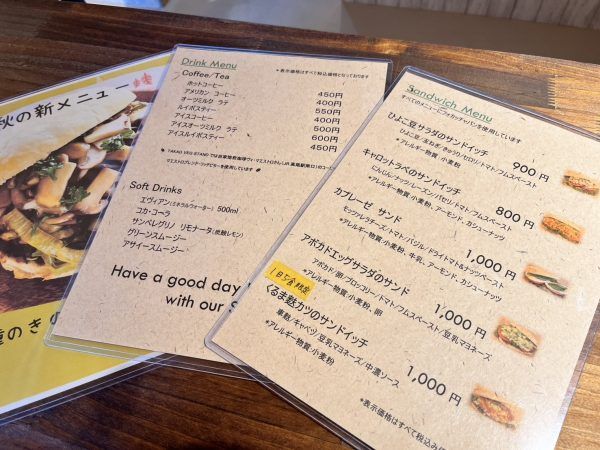 秋の新メニュー
Drink Menu
*表示価格はすべて税込価格となっております
Coffee/Tea
ホットコーヒー 450円
アメリカン コーヒー 400円
オーツミルク ラテ 550円
ルイボスティー 400円
アイスコーヒー 500円
アイスオーツミルク ラテ 600円
アイスルイボスティー 450円
Soft Drinks
エヴィアン(ミネラルウォーター) 500ml
コカ・コーラ
サンペレグリノ リモナータ(炭酸レモン)
グリーンスムージー
アサイースムージー
Have a good day
with our S
Sandwich Menu
ひよこ豆サラダのサンドイッチ 900円
ひよこ豆/玉ねぎ/きゅうり/セロリ/トマト/フムスペースト
*アレルギー物質:小麦粉
キャロットラペのサンドイッチ 800円
にんじん/ナッツ/レーズン/パセリ/トマト/フムスペースト
*アレルギー物質:小麦粉、アーモンド、カシューナッツ
カプレーゼ サンド 1,000円
モッツァレラチーズ/トマト/バジル/ドライトマト&ナッツペースト
*アレルギー物質:小麦粉、牛乳、アーモンド、カシューナッツ
アボカドエッグサラダのサンド 1,000円
アボカド/卵/ブロッコリー/トマト/フムスペースト/豆乳マヨネーズ
*アレルギー物質:小麦粉、卵
1日5食限定
くるま麩カツのサンドイッチ 1,000円
車麩/キャベツ/豆乳マヨネーズ/中濃ソース
*アレルギー物質:小麦粉
*表示価格はすべて税込み